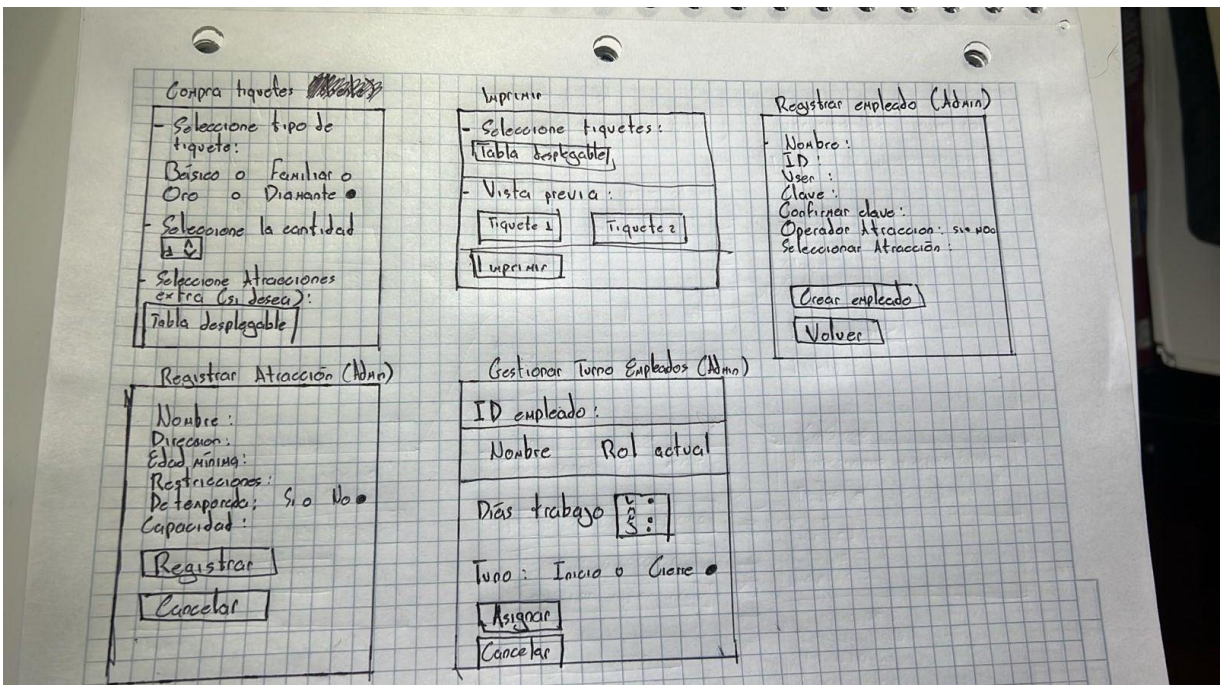 Compra tiquetes
- Seleccione tipo de
tiquete:
Básico o Familiar o
Oro o Diamante ●
- Seleccione la cantidad
1
- Seleccione Atracciones
extra (si desea):
Tabla desplegable
Imprimir
- Seleccione tiquetes:
Tabla desplegable
- Vista previa:
Tiquete 1 Tiquete 2
Imprimir
Registrar empleado (Admin)
- Nombre:
ID:
User:
Clave:
Confirmar clave:
Operador Atraccion: si o no o
Seleccionar Atracción:
Crear empleado
Volver
Registrar Atracción (Admin)
Nombre:
Direccion:
Edad mínima:
Restricciones:
De temporada: Si o No ●
Capacidad:
Registrar
Cancelar
Gestionar Turno Empleados (Admin)
ID empleado:
Nombre Rol actual
Días trabajo
Turno: Inicio o Cierre ●
Asignar
Cancelar